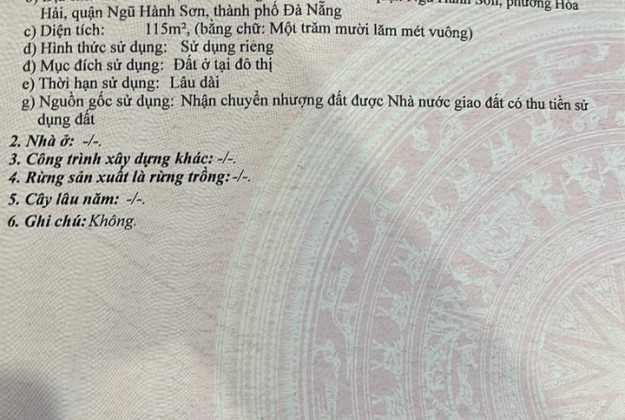 Sơn, phường Hòa
Hải, quận Ngũ Hành Sơn, thành phố Đà Nẵng
c) Diện tích: 115m², (bằng chữ: Một trăm mười lăm mét vuông)
d) Hình thức sử dụng: Sử dụng riêng
đ) Mục đích sử dụng: Đất ở tại đô thị
e) Thời hạn sử dụng: Lâu dài
g) Nguồn gốc sử dụng: Nhận chuyển nhượng đất được Nhà nước giao đất có thu tiền sử
dụng đất
2. Nhà ở: -/-.
3. Công trình xây dựng khác: -/-.
4. Rừng sản xuất là rừng trồng: -/-.
5. Cây lâu năm: -/-.
6. Ghi chú: Không.